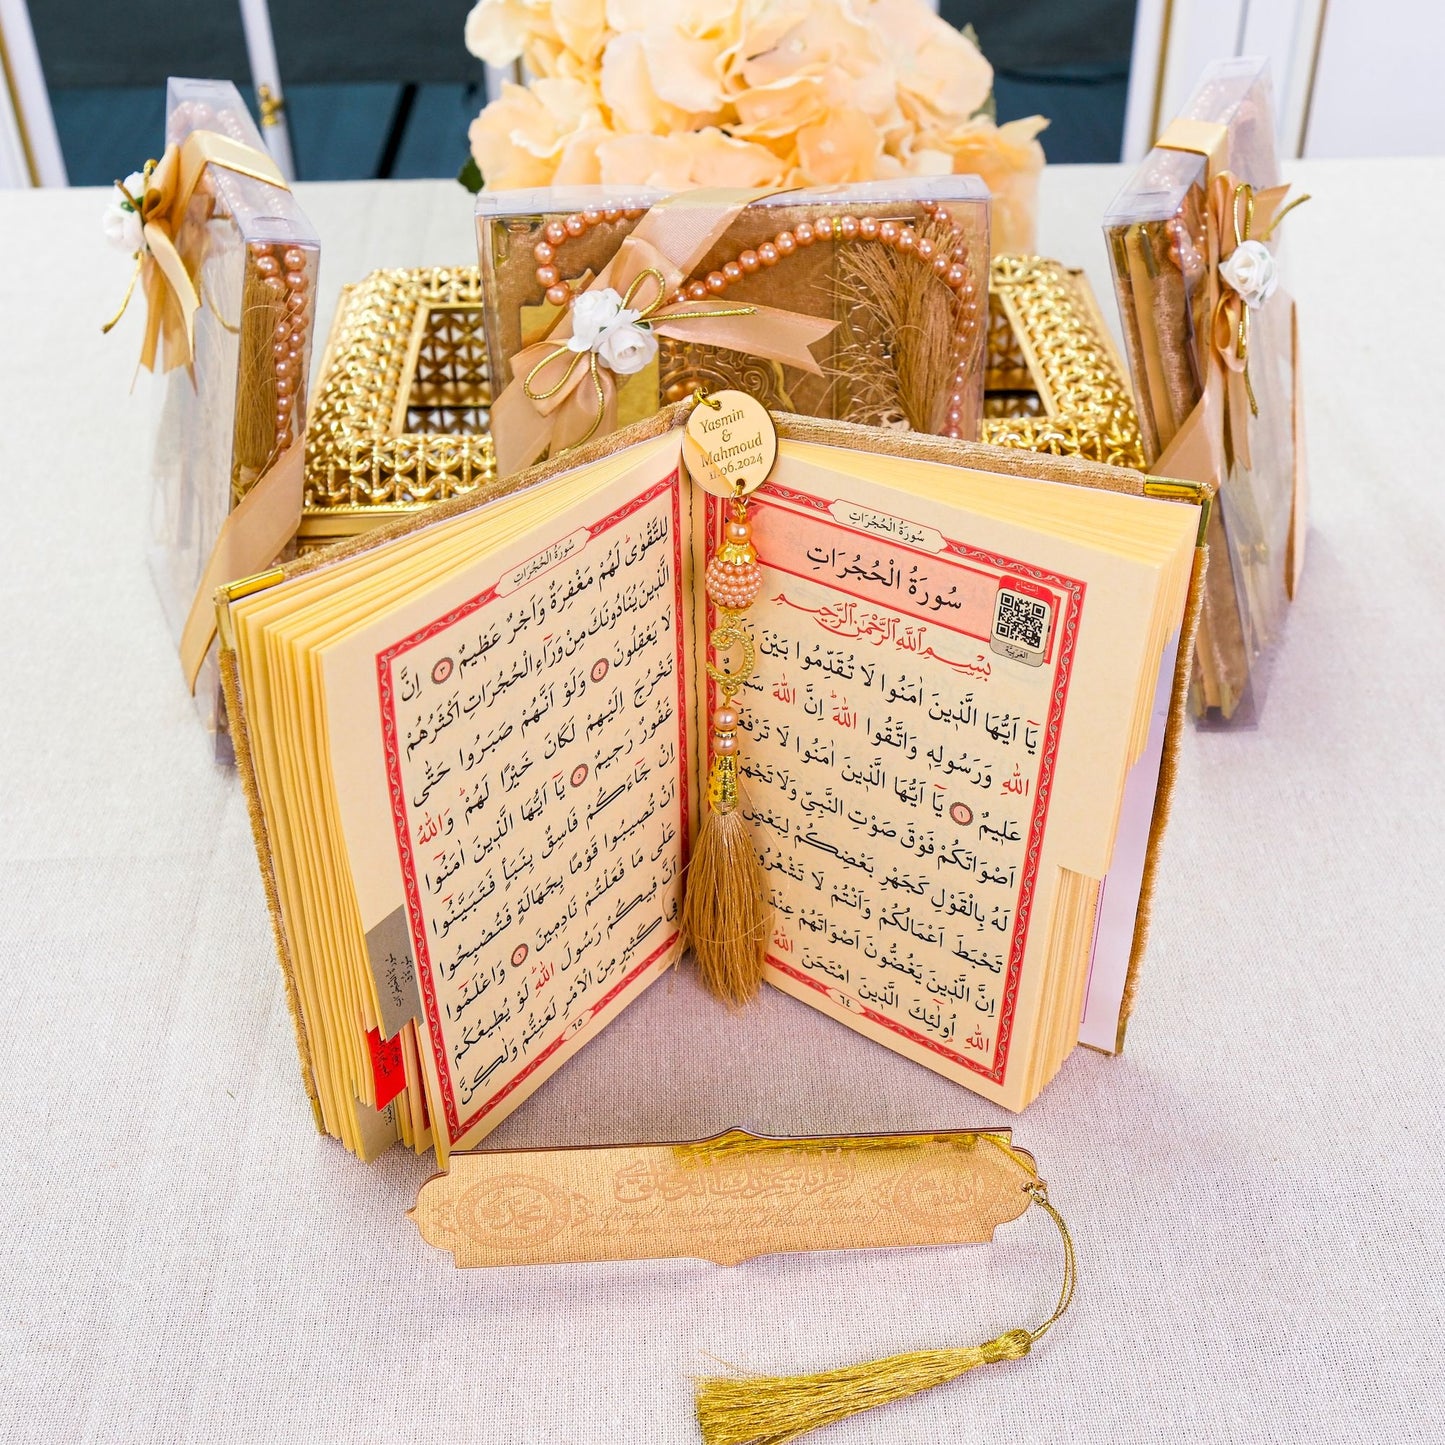 Yasmin
&
Mahmoud
11.06.2024
سُورَةُ الْحُجُرَاتِ
سُورَةُ الْحُجُرَاتِ
اِسْتِمَاع
العَرَبِيَّة
بِسْمِ اللّٰهِ الرَّحْمٰنِ الرَّحِيمِ
يَٓا اَيُّهَا الَّذِينَ اٰمَنُوا لَا تُقَدِّمُوا بَيْنَ
اللّٰهِ وَرَسُولِهِ وَاتَّقُوا اللّٰهَ اِنَّ اللّٰهَ
عَلِيمٌ ﴿١﴾ يَٓا اَيُّهَا الَّذِينَ اٰمَنُوا لَا
اَصْوَاتَكُمْ فَوْقَ صَوْتِ النَّبِيِّ وَلَا
لَهُ بِالْقَوْلِ كَجَهْرِ بَعْضِكُمْ لِبَعْضٍ
تَحْبَطَ اَعْمَالُكُمْ وَاَنْتُمْ لَا تَشْعُرُونَ
اِنَّ الَّذِينَ يَغُضُّونَ اَصْوَاتَهُمْ عِنْدَ
اللّٰهِ اُولٰٓئِكَ الَّذِينَ امْتَحَنَ اللّٰهُ
٦٤
سُورَةُ الْحُجُرَاتِ
لِلتَّقْوٰى لَهُمْ مَغْفِرَةٌ وَاَجْرٌ عَظِيمٌ ﴿٣﴾ اِنَّ
الَّذِينَ يُنَادُونَكَ مِنْ وَرَٓاءِ الْحُجُرَاتِ اَكْثَرُهُمْ
لَا يَعْقِلُونَ ﴿٤﴾ وَلَوْ اَنَّهُمْ صَبَرُوا حَتّٰى
تَخْرُجَ اِلَيْهِمْ لَكَانَ خَيْرًا لَهُمْ وَاللّٰهُ
غَفُورٌ رَحِيمٌ ﴿٥﴾ يَٓا اَيُّهَا الَّذِينَ اٰمَنُٓوا
اِنْ جَٓاءَكُمْ فَاسِقٌ بِنَبَأٍ فَتَبَيَّنُٓوا
اَنْ تُصِيبُوا قَوْمًا بِجَهَالَةٍ فَتُصْبِحُوا
عَلٰى مَا فَعَلْتُمْ نَادِمِينَ ﴿٦﴾ وَاعْلَمُٓوا
اَنَّ فِيكُمْ رَسُولَ اللّٰهِ لَوْ يُطِيعُكُمْ
فِي كَثِيرٍ مِنَ الْاَمْرِ لَعَنِتُّمْ وَلٰكِنَّ
٦٥
محمد
الله